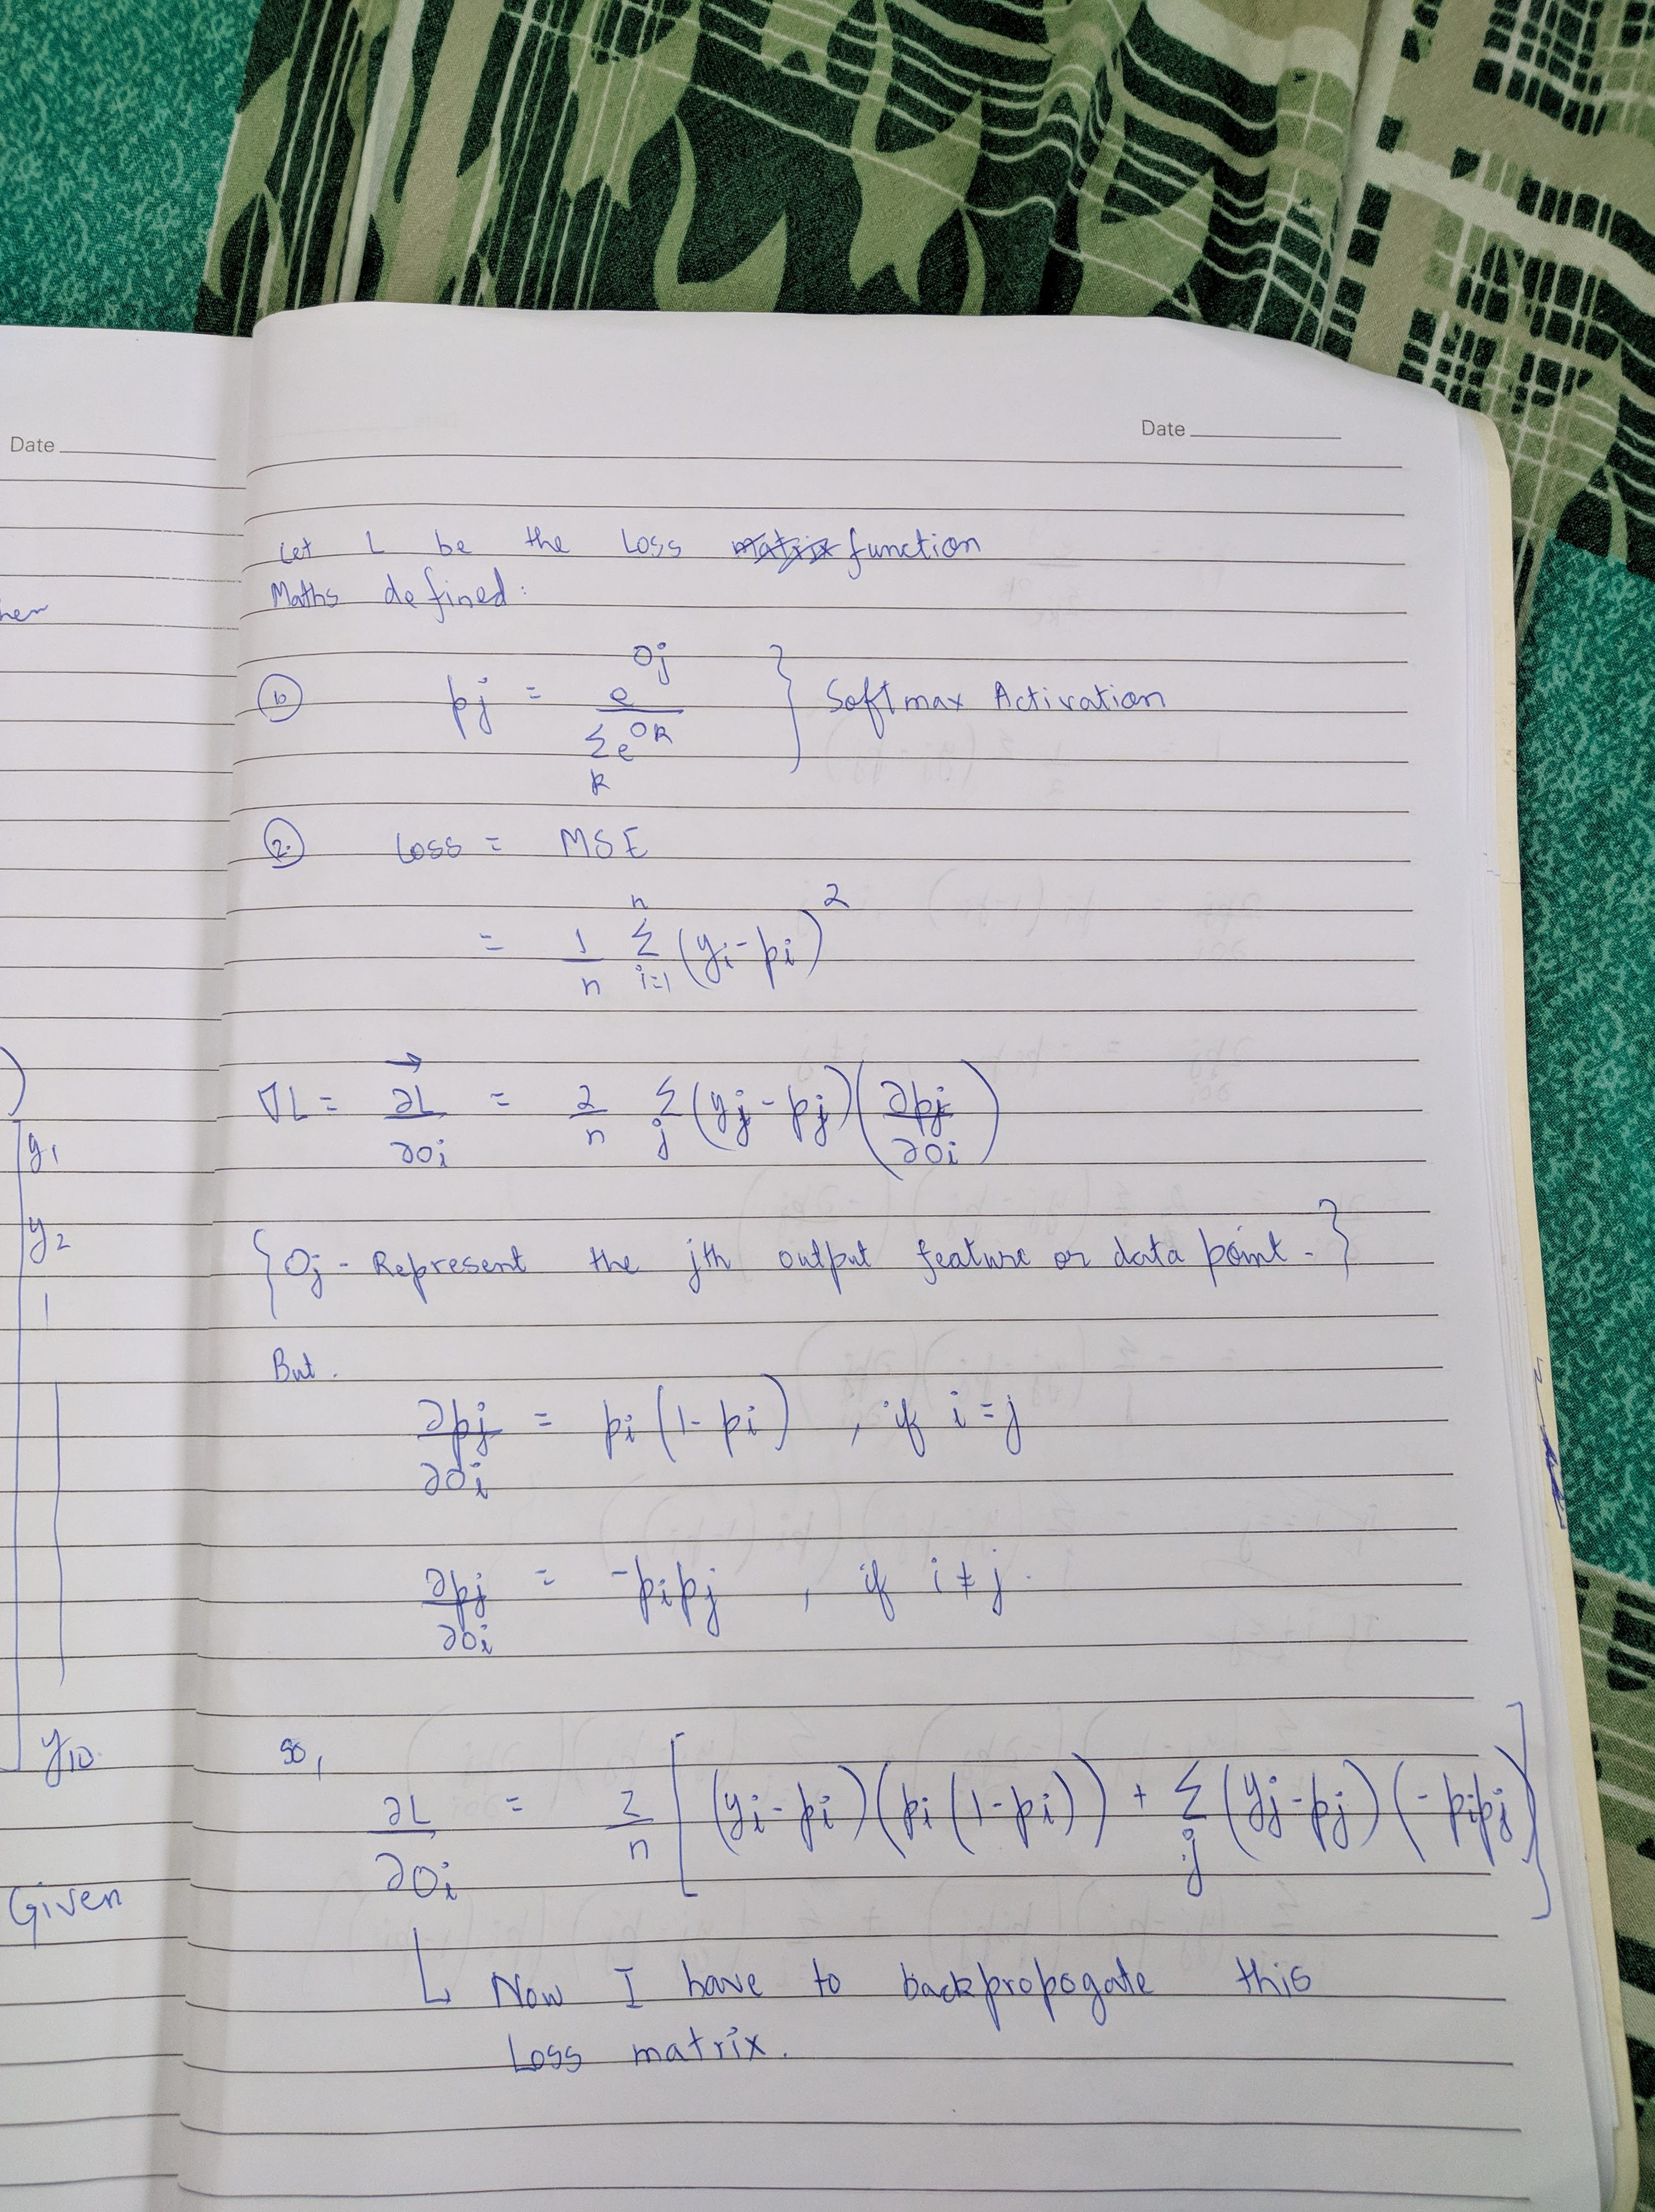 Date
her
)
y1
y2
|
y10
Given
Date
Let L be the Loss matrix function
Maths defined:
① pj = e^oj / Σ_k e^ok } Softmax Activation
② Loss = MSE
= 1/n Σ_{i=1}^{n} (yi - pi)^2
∇L = ∂L/∂oi = 2/n Σ_j (yj - pj) (∂pj/∂oi)
{ Oj - Represent the jth output feature or data point. }
But.
∂pj/∂oi = pi (1 - pi) , if i = j
∂pj/∂oi = -pipj , if i ≠ j.
So,
∂L/∂Oi = 2/n [ (yi - pi) (pi (1 - pi)) + Σ_j (yj - pj) (-pipj) ]
↳ Now I have to backpropogate this
Loss matrix.